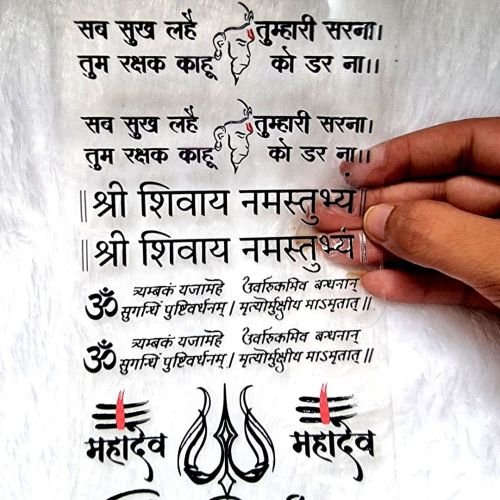 सब सुख लहै तुम्हारी सरना।
तुम रक्षक काहू को डर ना।।
सब सुख लहै तुम्हारी सरना।
तुम रक्षक काहू को डर ना।।
||श्री शिवाय नमस्तुभ्यं||
||श्री शिवाय नमस्तुभ्यं||
ॐ त्र्यम्बकं यजामहे उर्वारुकमिव बन्धनान्
सुगन्धिं पुष्टिवर्धनम् | मृत्योर्मुक्षीय माऽमृतात् ||
ॐ त्र्यम्बकं यजामहे उर्वारुकमिव बन्धनान्
सुगन्धिं पुष्टिवर्धनम् | मृत्योर्मुक्षीय माऽमृतात् ||
महादेव महादेव